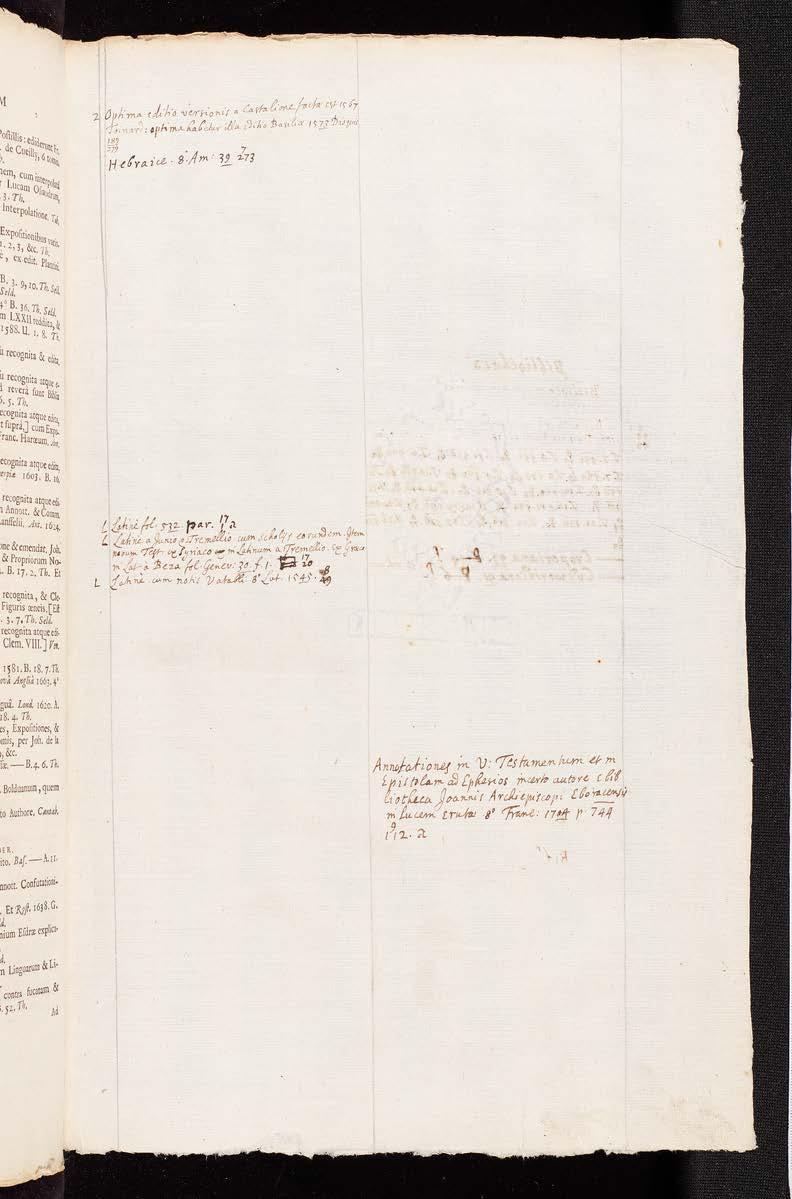 M
Postillis: ediderunt Fr.
de Cueilly, 6 tomis,
nem, cum interpolod
Lucam Osiandrum,
3. Th.
Interpolatione. Tub.
Expositionibus variis.
1. 2, 3, &c. Th.
ex edit. Plantini.
B. 3. 9, 10. Th. Seld.
Seld.
4° B. 36. Th. Seld.
m LXXII reddita, &
1588. U. 1. 8. Th.
recognita & edita,
u recognita atque e-
reverâ sunt Biblia
5. Th.
recognita atque edita,
t suprà,] cum Expo-
Franc. Haræum. Ant.
recognita atque edita,
1603. B. 16.
recognita atque edi-
Annott. & Comm.
Jansselii, Ant. 1624.
one & emendat. Joh.
& Propriorum No-
B. 17. 2. Th. Et
recognita, & Cle-
Figuris æneis. [Est
3. 7. Th. Seld.
recognita atque edi-
Clem. VIII.] Ven.
1581. B. 18. 7. Th.
ovâ Angliâ 1663. 4°
guâ. Lond. 1620. A.
18. 4. Th.
es, Expositiones, &
omis, per Joh. de la
&c.
B. 4. 6. Th.
Bolduanum, quem
to Authore, Cantab.
DER.
ito. Bas. — A. 11.
nnott. Confutationi-
Et Rost. 1638. G.
nium Esdræ explica-
m Linguarum & Li-
contra fucatam &
52. Th.
Ad
2 Optima editio versionis a Castalione facta est 1567
optima habetur illa editio Basiliæ 1573
189
279
Hebraice. 8° Am: 39 7/273
L Latinè fol. 532. par. 17/1 a
L Latinè a Junio & Tremellio cum scholijs eorundem Item
novum Test ex Syriaco in Latinum a Tremellio. Ex Græco
in Lat à Beza fol Genev: 30. f. 1. 17/20
L Latinè cum notis Vatabli 8° Lut. 1545. 8/49
Annotationes in V: Testamentum et in
Epistolam ad Ephesios incerto autore e bib
liotheca Joannis Archiepiscopi Eboracensis
in lucem eruta 8° Franc: 1704 p. 744
9
112. a